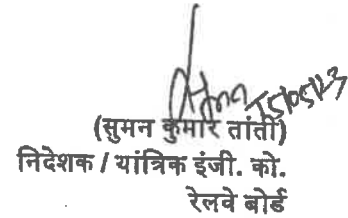 15/05/23
(सुमन कुमार तांती)
निदेशक / यांत्रिक इंजी. को.
रेलवे बोर्ड